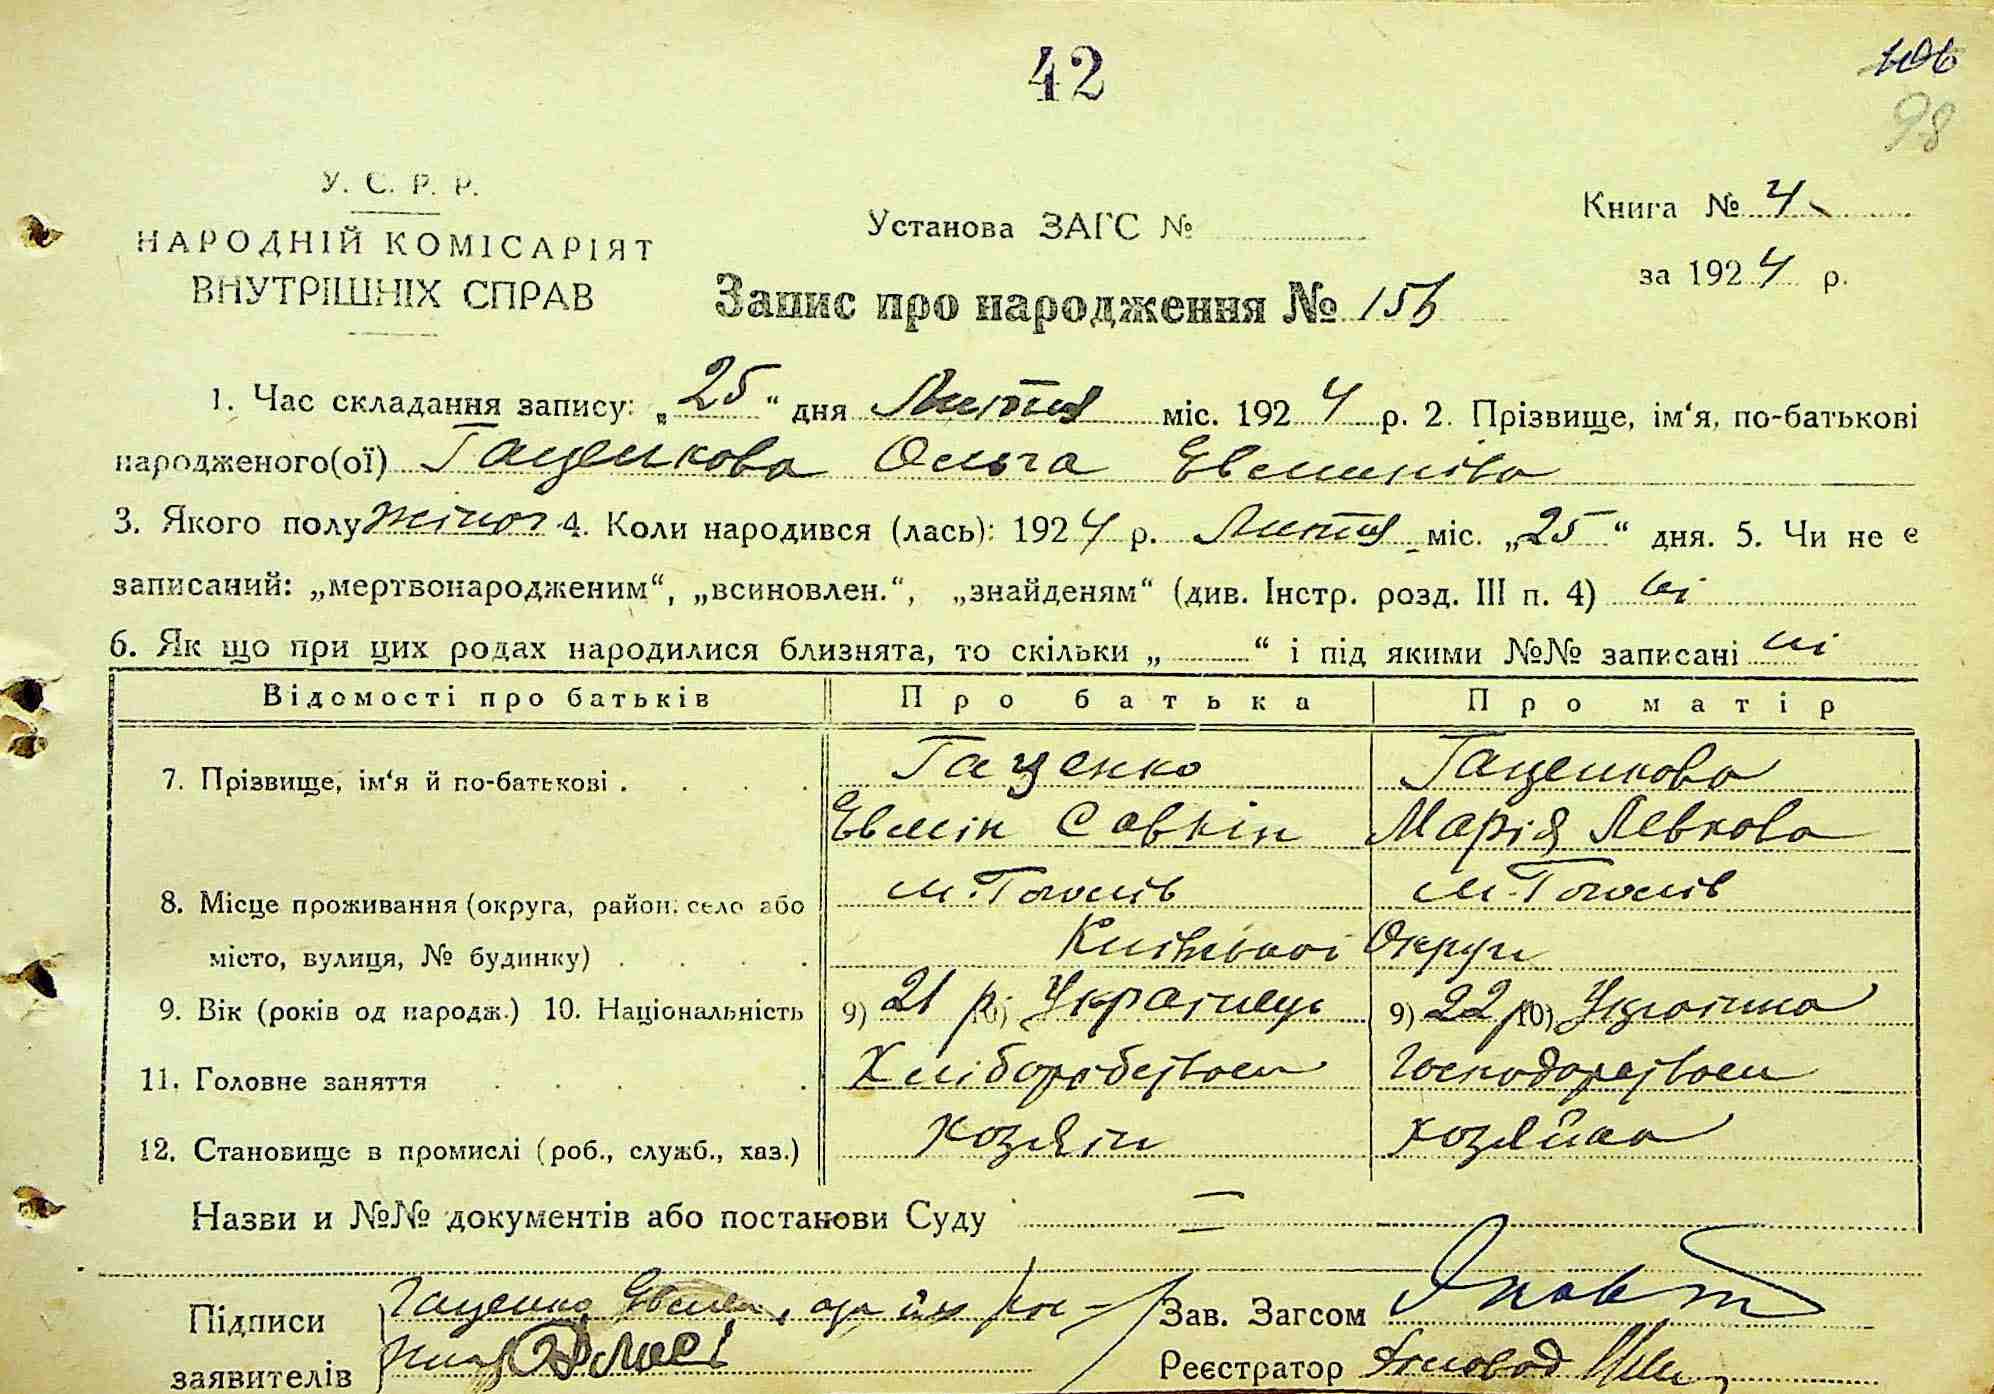 42
106
98
У. С. Р. Р.
НАРОДНІЙ КОМІСАРІЯТ
ВНУТРІШНІХ СПРАВ
Установа ЗАГС №
Книга № 4
за 1924 р.
Запис про народження № 156
1. Час складання запису: „25“ дня Лютия міс. 1924 р. 2. Прізвище, ім‘я, по-батькові
народженого(ої) Гаценкова Ольга Евминіва
3. Якого полу жіноч 4. Коли народився (лась): 1924 р. Лютия міс. „25“ дня. 5. Чи не є
записаний: „мертвонародженим“, „всиновлен.“, „знайденям“ (див. Інстр. розд. III п. 4) ні
6. Як що при цих родах народилися близнята, то скільки „ “ і під якими №№ записані ні
Відомості про батьків Про батька Про матір
7. Прізвище, ім‘я й по-батькові . Гаценко Гаценкова
Евмін Савкін Марія Левкова
8. Місце проживання (округа, район, село або м. Гоголів м. Гоголів
місто, вулиця, № будинку) Київської Округи
9. Вік (років од народж.) 10. Національність 9) 21 р. 10) Українець 9) 22 р. 10) Українка
11. Головне заняття Хліборобством Господарством
12. Становище в промислі (роб., служб., хаз.) хозяін хозяйка
Назви и №№ документів або постанови Суду —
Підписи Гаценко Зав. Загсом
заявителів Реєстратор